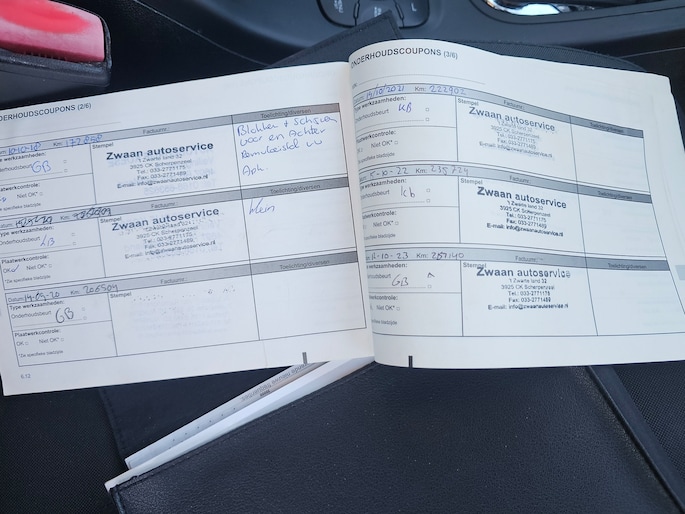 ONDERHOUDSCOUPONS (2/6)
Km:
Factuurnr.:
Toelichting/diversen
Type werkzaamheden:
Onderhoudsbeurt
GB
Stempel
Zwaan autoservice
't Zwarte land 32
3925 CK Scherpenzeel
Tel.: 033-2771175
Fax: 033-2771489
E-mail: info@zwaanautoservice.nl
Blokken + Schijven
voor en Achter
Plaatwerkcontrole:
OK □ Niet OK* □
*Zie specifieke bladzijde
Factuurnr.:
Toelichting/diversen
Onderhoudsbeurt
Stempel
Zwaan autoservice
't Zwarte land 32
3925 CK Scherpenzeel
Tel.: 033-2771175
Fax: 033-2771489
E-mail: info@zwaanautoservice.nl
Klein
Plaatwerkcontrole:
OK Niet OK* □
*Zie specifieke bladzijde
Datum: 14-09-20 Km: 206509
Factuurnr.:
Toelichting/diversen
Type werkzaamheden:
Onderhoudsbeurt
GB
Stempel
Plaatwerkcontrole:
OK □ Niet OK* □
*Zie specifieke bladzijde
6.12
ONDERHOUDSCOUPONS (3/6)
Datum: 14/10/2021 Km: 222902
Type werkzaamheden:
Onderhoudsbeurt
KB
Stempel
Zwaan autoservice
't Zwarte land 32
3925 CK Scherpenzeel
Tel.: 033-2771175
Fax: 033-2771489
E-mail: info@zwaanautoservice.nl
Plaatwerkcontrole:
Niet OK* □
5-10-22 Km: 235724
Type werkzaamheden:
kb
Stempel
Zwaan autoservice
't Zwarte land 32
3925 CK Scherpenzeel
Tel.: 033-2771175
Fax: 033-2771489
E-mail: info@zwaanautoservice.nl
Plaatwerkcontrole:
Niet OK* □
Km:
Factuurnr.:
Toelichting/diversen
GB
Stempel
Zwaan autoservice
't Zwarte land 32
3925 CK Scherpenzeel
Tel.: 033-2771175
Fax: 033-2771489
E-mail: info@zwaanautoservice.nl
Plaatwerkcontrole:
OK □ Niet OK* □
*Zie specifieke bladzijde